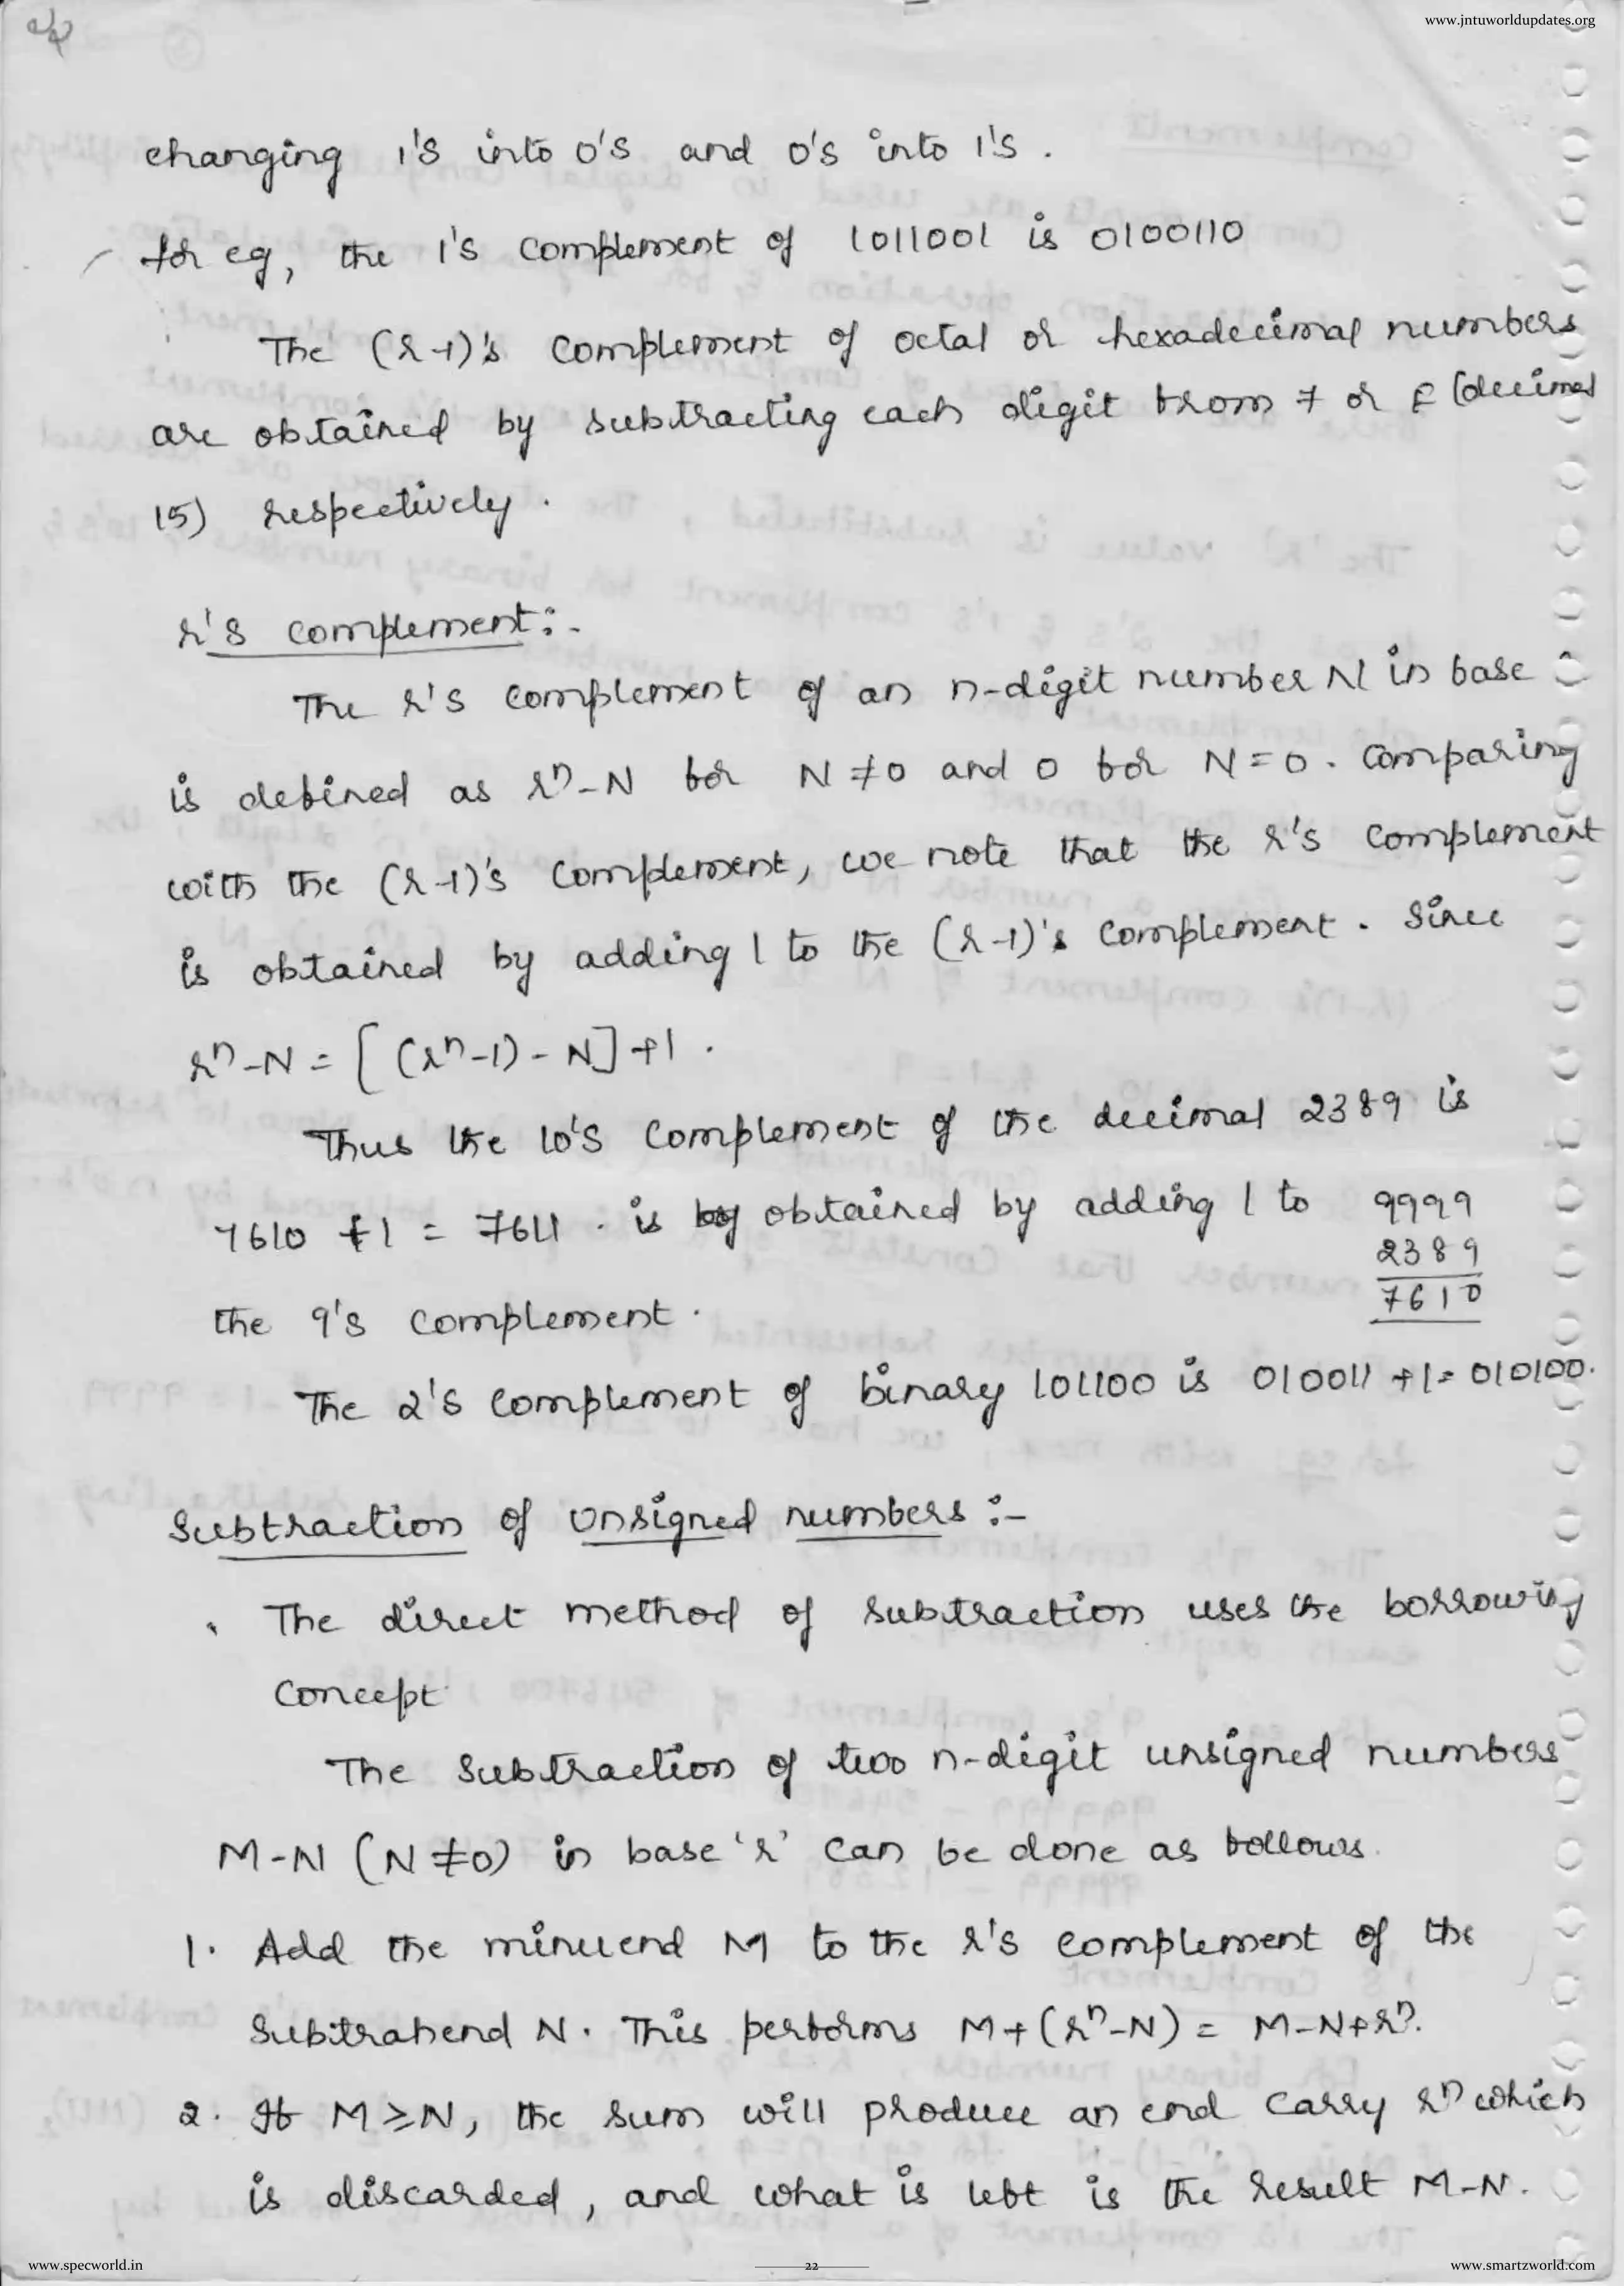 www.jntuworldupdates.org
changing 1's into 0's and 0's into 1's.
for eg, the 1's complement of 1011001 is 0100110
The (r-1)'s complement of octal or hexadecimal numbers
are obtained by subtracting each digit from 7 or F (decimal
15) respectively.
r's complement:-
The r's complement of an n-digit number N in base
is defined as rⁿ-N for N≠0 and 0 for N=0. Comparing
with the (r-1)'s complement, we note that the r's complement
is obtained by adding 1 to the (r-1)'s complement. Since
rⁿ-N = [(rⁿ-1)-N]+1.
Thus the 10's complement of the decimal 2389 is
7610 +1 = 7611. is obtained by adding 1 to
the 9's complement.
9999
2389
7610
The 2's complement of binary 101100 is 010011 +1= 010100.
Subtraction of Unsigned numbers :-
The direct method of subtraction uses the borrowing
concept
The subtraction of two n-digit unsigned numbers
M-N (N≠0) in base 'r' can be done as follows.
1. Add the minuend M to the r's complement of the
Subtrahend N. This performs M+(rⁿ-N) = M-N+rⁿ.
2. If M≥N, the sum will produce an end carry rⁿ which
is discarded, and what is left is the result M-N.
www.specworld.in
22
www.smartzworld.com